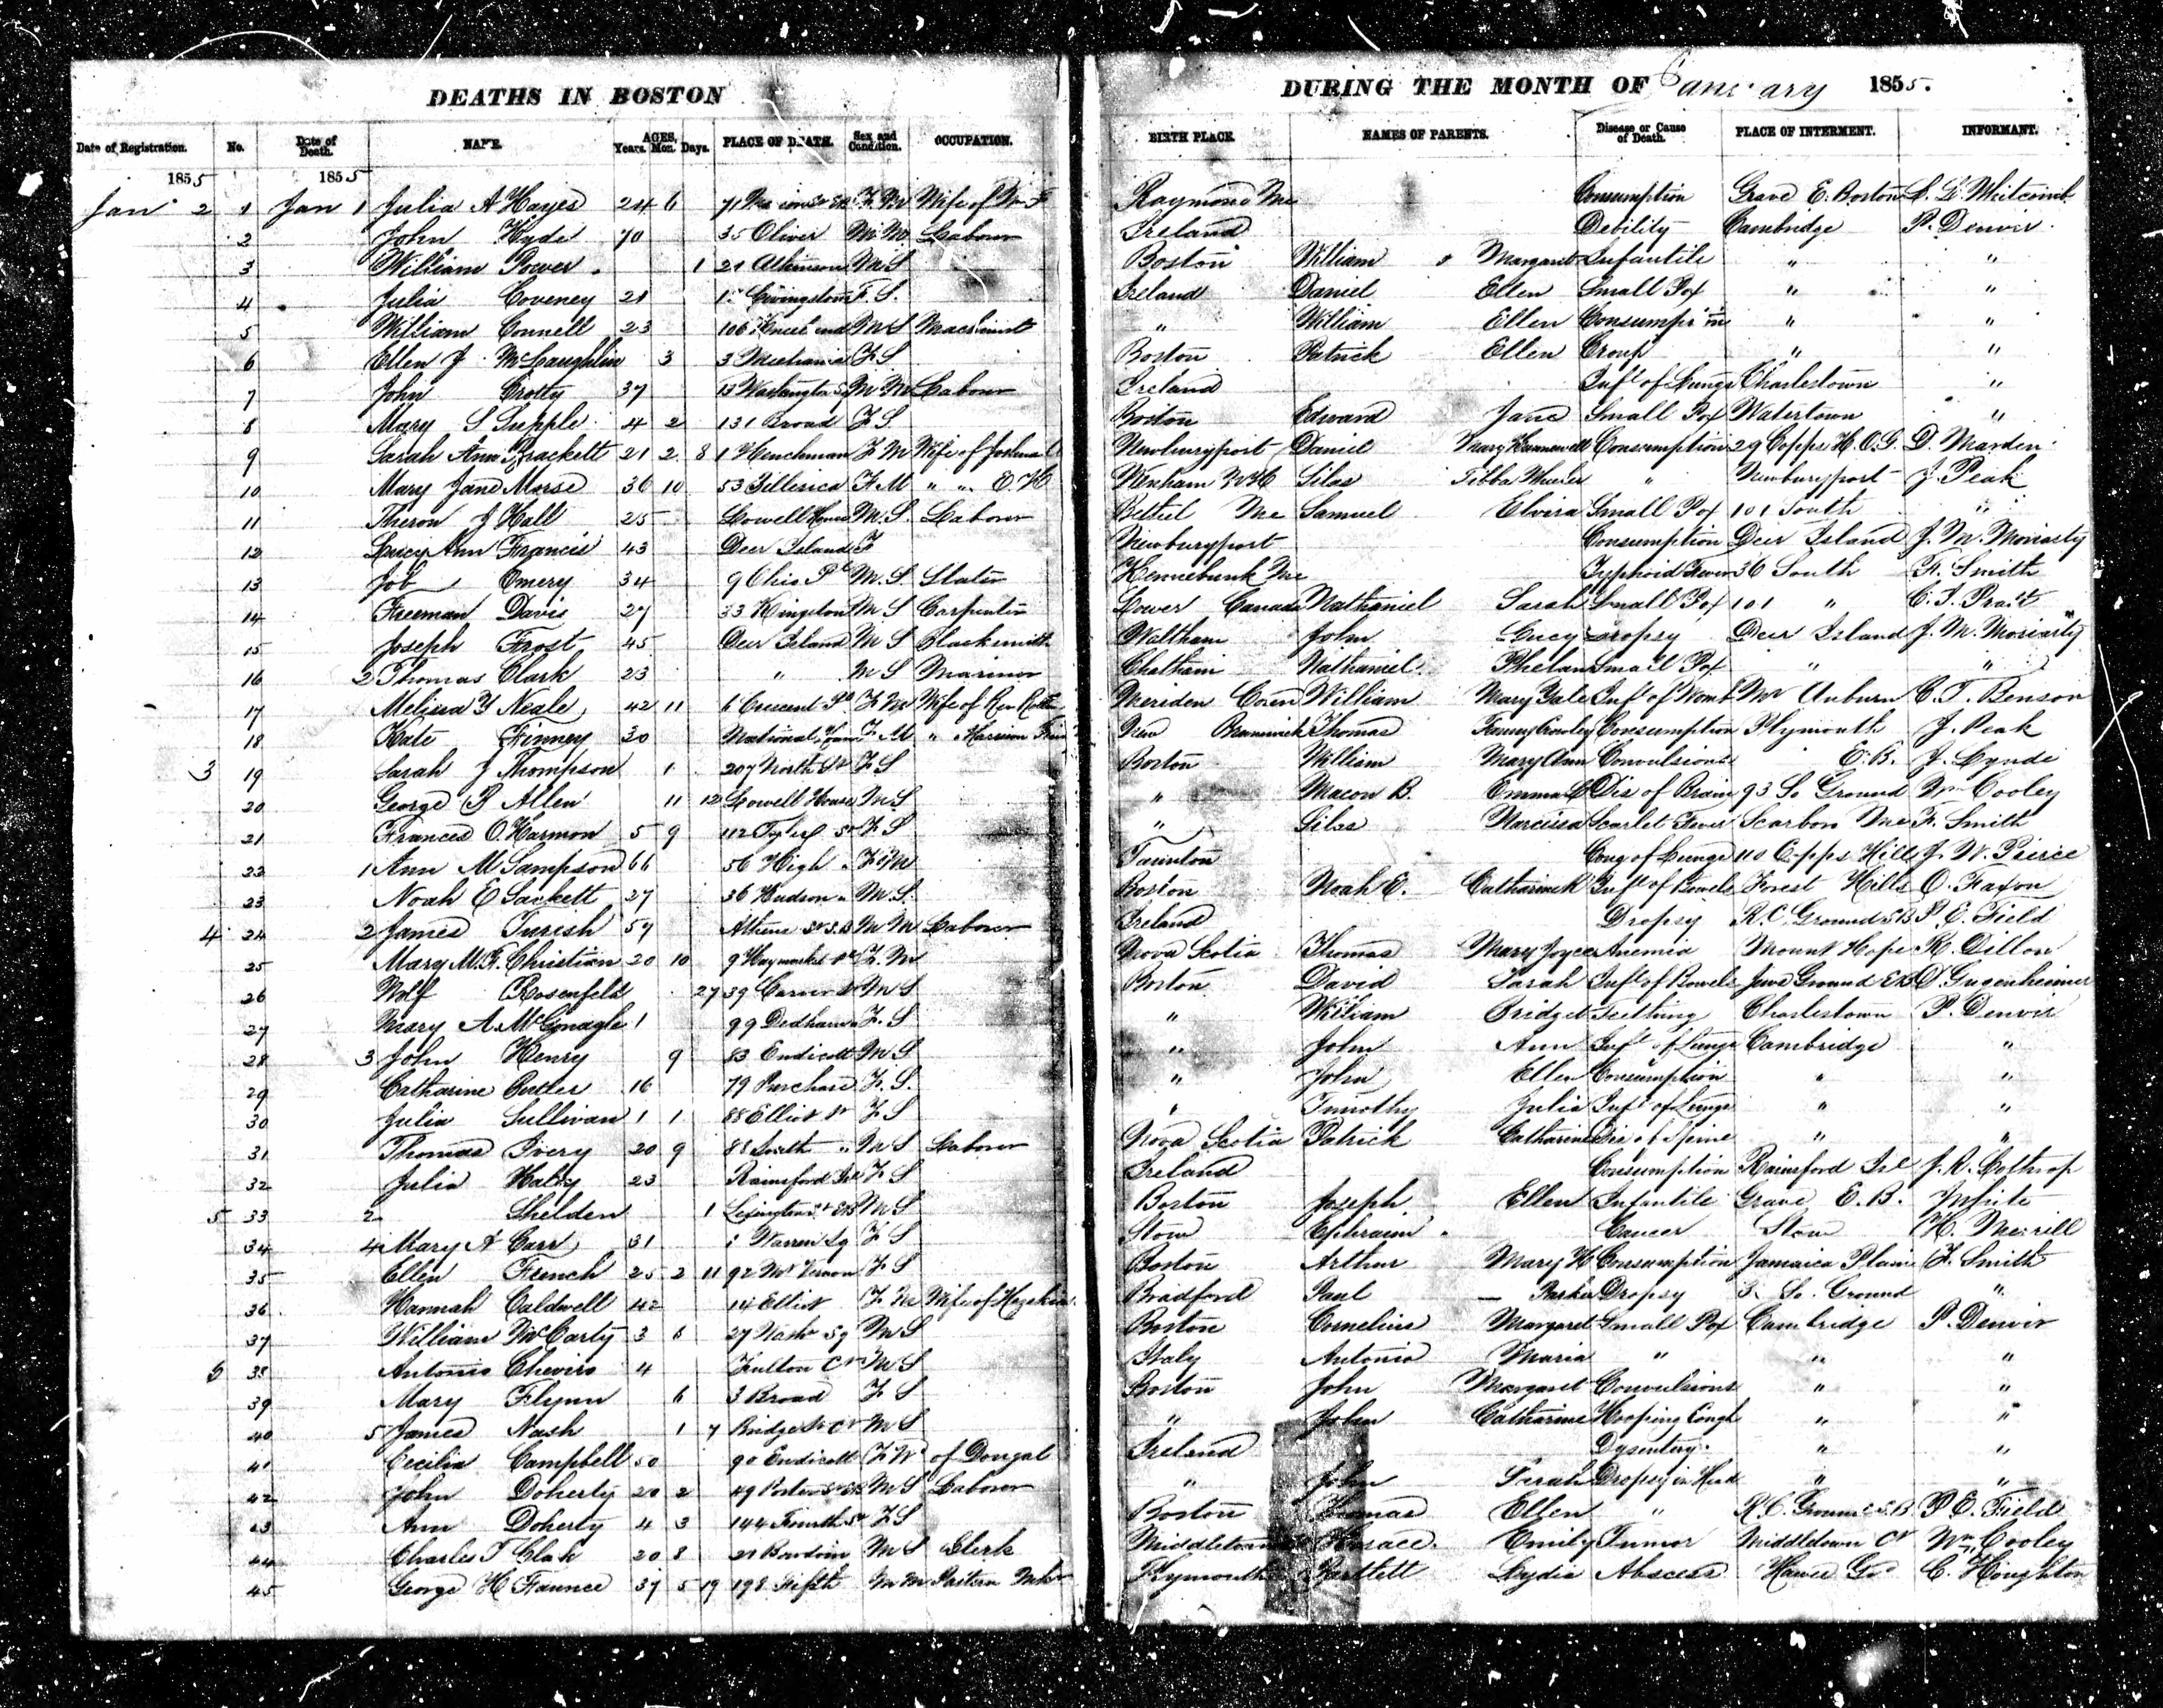 DEATHS IN BOSTON DURING THE MONTH OF January 1855.
Date of Registration. No. Date of Death. NAME. AGES. Years. Mon. Days. PLACE OF DEATH. Sex and Condition. OCCUPATION. BIRTH PLACE. NAMES OF PARENTS. Disease or Cause of Death. PLACE OF INTERMENT. INFORMANT.
1855 1855
Jan 2 1 Jan 1 Julia A Hayes 24 6 71 F M Wife of Raymond Me Consumption Grave E. Boston Whitcomb
2 John Hyde 70 35 Oliver M M Labourer Ireland Debility Cambridge P. Denvir
3 William Power 1 21 Atkinson M S Boston William & Margaret Infantile " "
4 Julia Coveney 21 Livingston F. S. Ireland Daniel Ellen Small Pox " "
5 William Connell 23 106 Kneeland M S Machinist " William Ellen Consumption " "
6 Ellen J McLaughlin 3 3 Mechanic F S Boston Patrick Ellen Croup " "
7 John Crotty 37 13 Washington Sq M M Labourer Ireland Inft of Lungs Charlestown "
8 Mary S Supple 4 2 131 Broad F S Boston Edward Jane Small Pox Watertown "
9 Sarah Ann Brackett 21 2 8 1 Henchman F M Wife of Joshua Newburyport Daniel Mary Consumption 29 Copps H. O. G. D. Marden
10 Mary Jane Morse 36 10 53 Billerica F. M " " E. H Wenham Silas Consumption Newburyport J. Peak
11 Theron J Hall 25 Lowell House M. S. Laborer Bethel Me Samuel Elvira Small Pox 101 South "
12 Lucy Ann Francis 43 Deer Island F Newburyport Consumption Deer Island J. M. Moriarty
13 Job Emery 34 9 Ohio Pl M. S Slater Kennebunk Me Typhoid Fever 36 South F. Smith
14 Freeman Davis 27 33 Kingston M S Carpenter Lower Canada Nathaniel Sarah Small Pox 101 " C. F. Pratt
15 Joseph Frost 45 Deer Island M S Blacksmith Waltham John Lucy Dropsy Deer Island J. M. Moriarty
16 2 Thomas Clark 23 " M S Mariner Chatham Nathaniel Small Pox " "
17 Melissa Y Neale 42 11 6 Crescent Pl F M Wife of Rev Meriden Conn William Mary Yale Inft of Womb Mt Auburn C. T. Benson
18 Kate Finney 30 National House F M " Harrison New Brunswick Thomas Fanny Crowley Consumption Plymouth J. Peak
3 19 Sarah J Thompson 1 207 North St F S Boston William Mary Ann Convulsions E. B. J. Lynde
20 George B Allen 11 12 Lowell House M S " Macon B. Emma Dis of Brain 93 So Ground Wm Cooley
21 Frances O. Harmon 5 9 112 Tyler St F S " Silas Narcissa Scarlet Fever Scarboro Me F. Smith
22 1 Ann M Sampson 66 56 High " Taunton Cong of Lungs 110 Copps Hill J. W. Peirce
23 Noah E Sackett 27 36 Hudson " M. S. Boston Noah E. Catharine Inft of Bowels Forest Hills O. Faxon
4 24 2 James Turish 57 Athens St S. B M M Laborer Ireland Dropsy R. C. Ground S. B P. E. Field
25 Mary M. F. Christian 20 10 9 Haymarket Pl F. M Nova Scotia Thomas Mary Joyce Anemia Mount Hope R. Dillon
26 Wolf Rosenfeld 27 39 Carver St M S Boston David Sarah Inft of Bowels Jews Ground E B D. Gugenheimer
27 Mary A. McGonagle 1 99 Dedham F. S " William Bridget Teething Charlestown P. Denvir
28 3 John Henry 9 83 Endicott M S " John Ann Inft of Lungs Cambridge "
29 Catharine Butler 16 79 Purchase F. S. " John Ellen Consumption " "
30 Julia Sullivan 1 1 88 Elliot St F S " Timothy Julia Inft of Lungs " "
31 Thomas Ivery 20 9 88 South " M S Laborer Nova Scotia Patrick Catharine Dis of Spine " "
32 Julia Haley 23 Rainsford Isl F S Ireland Consumption Rainsford Isl J. R. Lothrop
5 33 2 Shelden 1 Lexington St E B M S Boston Joseph Ellen Infantile Grave E. B. White
34 4 Mary A Carr 31 Warren Sq F S Stow Ephraim Cancer Stow H. Merrill
35 Ellen French 25 2 11 92 Mt Vernon F S Boston Arthur Mary H Consumption Jamaica Plain F. Smith
36 Hannah Caldwell 42 114 Elliot F M Wife of Hezekiah Bradford Paul — Parker Dropsy 3 So. Ground "
37 William McCarty 3 8 27 Wash Sq M S Boston Cornelius Margaret Small Pox Cambridge P. Denvir
6 38 Antonio Cheviro 4 Fulton Ct M S Italy Antonio Maria " " "
39 Mary Flynn 6 3 Broad F S Boston John Margaret Convulsions " "
40 5 James Nash 1 7 Bridge St Ct M S " John Catharine Hooping Cough " "
41 Cecilia Campbell 50 90 Endicott F W of Dougal Ireland Dysentery " "
42 John Doherty 20 2 49 Porter St E B M S Laborer " John Sarah Dropsy in Head " "
43 Ann Doherty 4 3 144 Fourth St F S Boston Thomas Ellen " R. C. Ground S. B P. E. Field
44 Charles T Clark 20 8 21 Bowdoin M S Clerk Middletown Horace Emily Tumor Middletown Ct Wm Cooley
45 George H Faunce 37 5 19 198 Fifth M M Pattern Mkr Plymouth Bartlett Lydia Abscess Hawes Gd C. Houghton